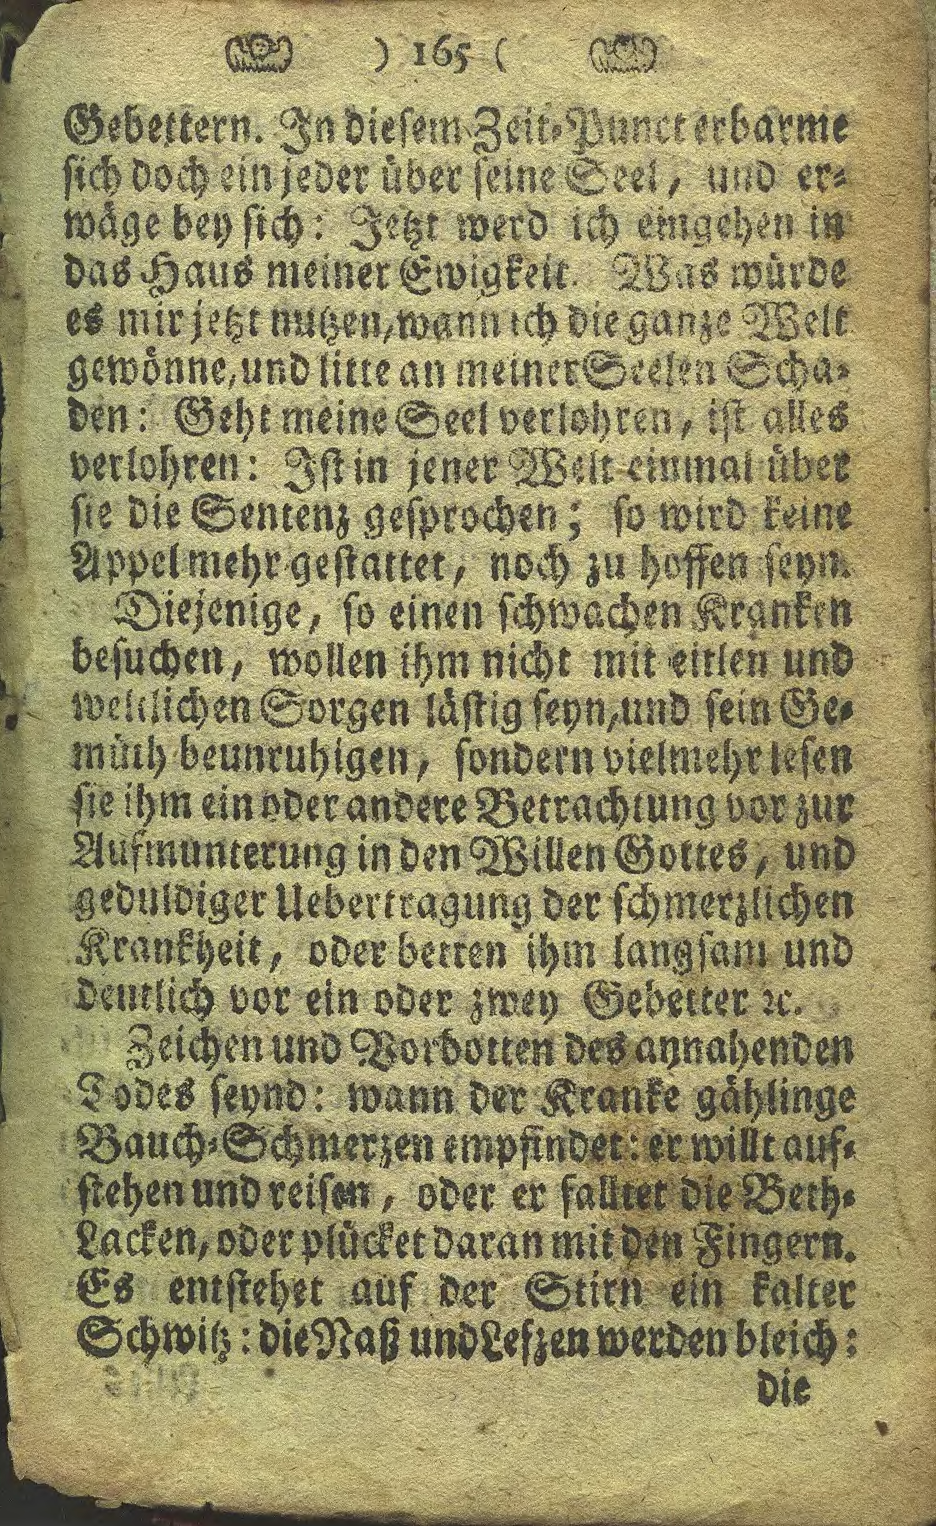 ) 165 (
Gebettern. In diesem Zeit-Punct erbarme
sich doch ein jeder über seine Seel, und er-
wäge bey sich: Jetzt werd ich eingehen in
das Haus meiner Ewigkeit. Was würde
es mir jetzt nutzen, wann ich die ganze Welt
gewönne, und litte an meiner Seelen Scha-
den: Geht meine Seel verlohren, ist alles
verlohren: Ist in jener Welt einmal über
sie die Sentenz gesprochen; so wird keine
Appel mehr gestattet, noch zu hoffen seyn.
Diejenige, so einen schwachen Kranken
besuchen, wollen ihm nicht mit eitlen und
weltlichen Sorgen lästig seyn, und sein Ge-
müth beunruhigen, sondern vielmehr lesen
sie ihm ein oder andere Betrachtung vor zur
Aufmunterung in den Willen Gottes, und
geduldiger Uebertragung der schmerzlichen
Krankheit, oder betten ihm langsam und
deutlich vor ein oder zwey Gebetter ꝛc.
Zeichen und Vorbotten des annahenden
Todes seynd: wann der Kranke gählinge
Bauch-Schmerzen empfindet: er willt auf-
stehen und reisen, oder er falltet die Beth-
Lacken, oder plücket daran mit den Fingern.
Es entstehet auf der Stirn ein kalter
Schwitz: die Naß und Lefzen werden bleich:
die